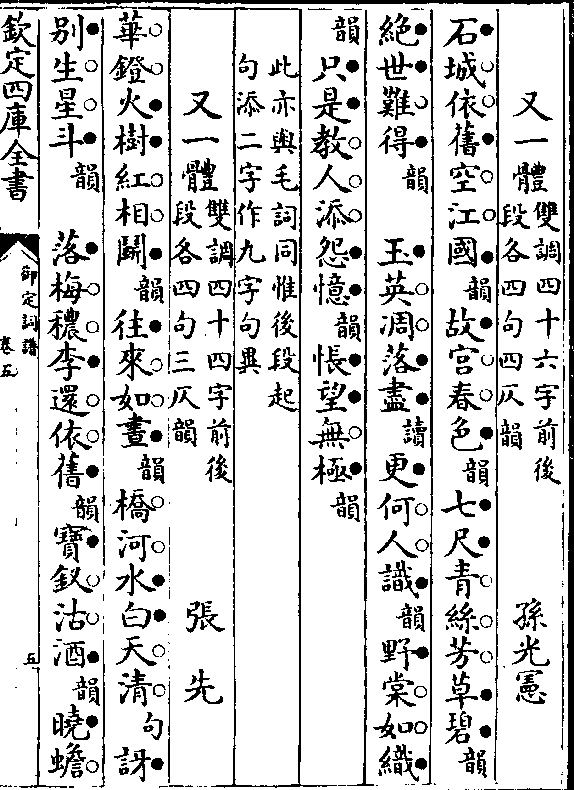 又一體 雙調四十六字前後 孫光憲
段各四句四仄韻
石城依舊空江國韻故宮春色韻七尺青絲芳草碧韻
絕世難得韻 玉英凋落盡讀更何人識韻野棠如織
韻只是教人添怨憶韻悵望無極韻
此亦與毛詞同惟後段起
句添二字作九字句異
又一體 雙調四十四字前後 張先
段各四句三仄韻
華鐙火樹紅相鬬韻往來如晝韻橋河水白天清句訝
別生星斗韻 落梅穠李還依舊韻寶釵沽酒韻曉蟾
欽定四庫全書
御定詞譜
卷五
五